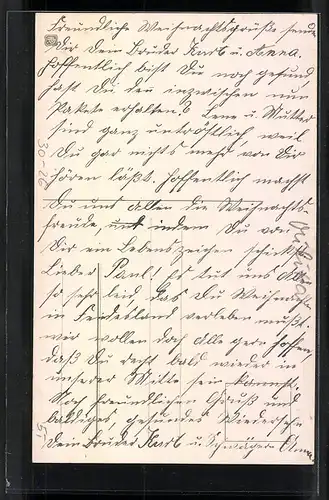 Freundliche Weihnachtsgrüße sendet
Dir Dein Bruder Kurt u. Anna.
Hoffentlich bist Du noch gesund,
hast Du den inzwischen nun
Pakete erhalten? Lene u. Mutter
sind ganz untröstlich, weil
Du gar nichts mehr von Dir
hören läßt. Hoffentlich machst
Du uns allen die Weihnachts-
freude, und indem Du von
Dir ein Lebenszeichen schickst.
Lieber Paul! Es tut uns Allen
so sehr leid, das Du Weihnachten
in Feindesland verleben mußt.
wir wollen doch Alle gern hoffen,
daß Du recht bald wieder in
unserer Mitte sein kannst.
Noch freundlichen Gruß und
baldiges gesundes Wiedersehn
Dein Bruder Kurt u. Schwägerin Anna.
30-26